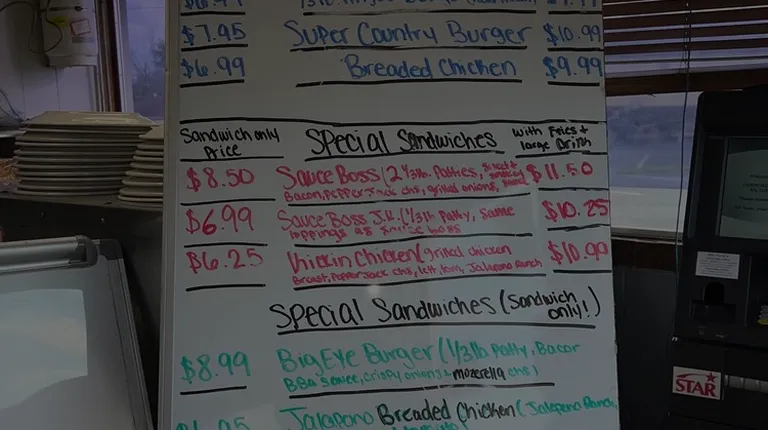 $7.95 Super Country Burger $10.99
$6.99 Breaded Chicken $9.99
Sandwich only Price Special Sandwiches with Fries + large Drink
$8.50 Sauce Boss (2 1/3lb. Patties, $11.50
Bacon, pepper jack chs, grilled onions,
$6.99 Sauce Boss J.R. (1/3lb Patty, same $10.25
toppings as boss
$6.25 Chicken (grilled chicken $10.99
Breast, Pepper Jack chs, lett, tom, Jalapeno Ranch
Special Sandwiches (Sandwich only!)
$8.99 Big Eye Burger (1/3lb Patty, Bacon
BBQ sauce, crispy onions + mozerella chs)
Jalapano Breaded Chicken (Jalapeno Ranch,
STAR